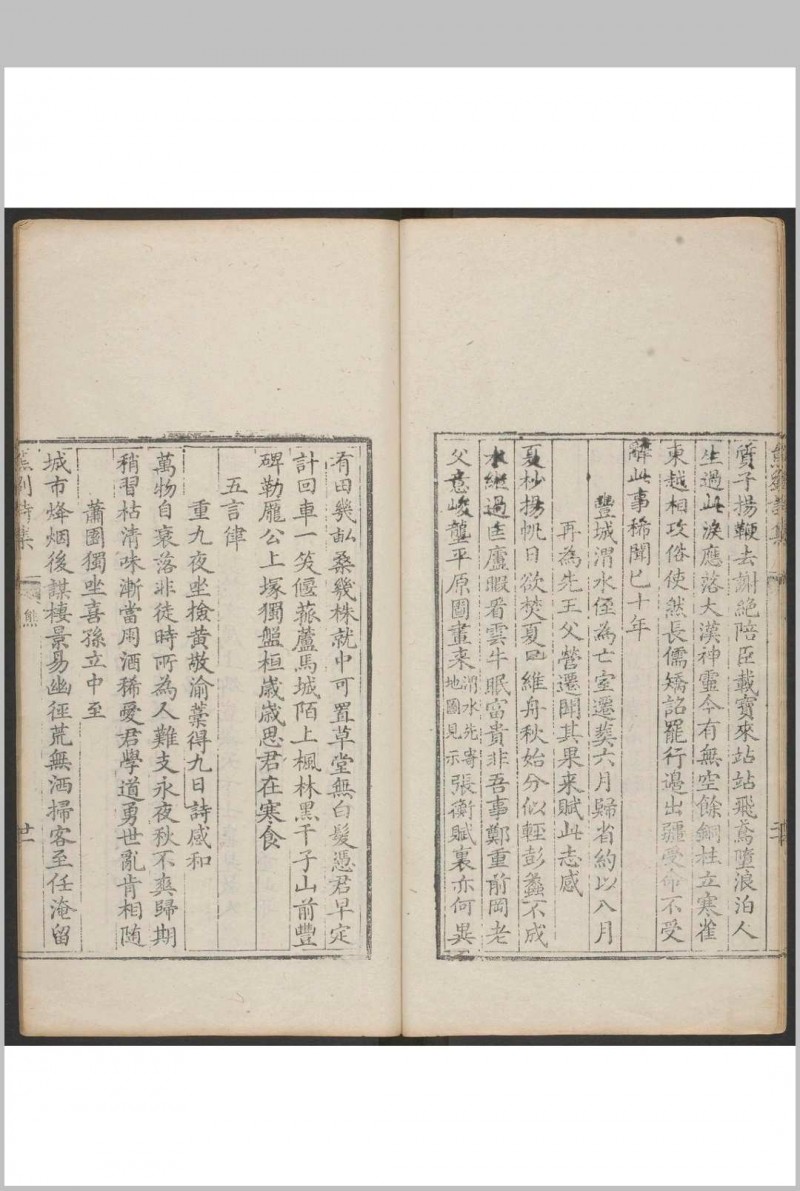 質子揚鞭去謝絕陪臣載寶來站站飛鳶墮浪泊人
生過此淚應落大漠神靈今有無空餘銅柱立寒雀
東越相攻俗使然長儒矯詔罷行邊出疆受命不受
辭此事稀聞已十年
豐城渭水侄為亡室遷葬六月歸省約以八月
再為先王父營遷聞其果来賦此志感
夏杪揚帆日欲焚夏 維舟秋始分似輕彭蠡不成
水繼過匡廬暇看雲牛眠富貴非吾事鄭重前岡老
父意峻龍平原圖畫来渭水先寄地圖見示張衡賦裏亦何異
有田幾畝桑幾株就中可置草堂無白髮憑君早定
計回車一笑偃菰蘆馬城陌上楓林黑干子山前豐
碑勒龐公上塚獨盤桓嵗嵗思君在寒食
五言律
重九夜坐撿黃敬渝藁得九日詩感和
萬物自衰落非徒時所為人難支永夜秋不爽歸期
稍習枯清味漸當用酒稀愛君學道勇世亂肯相随
蕭園獨坐喜孫立中至
城市烽烟後謀棲景易幽徑荒無洒掃客至任淹留
熊 廿一